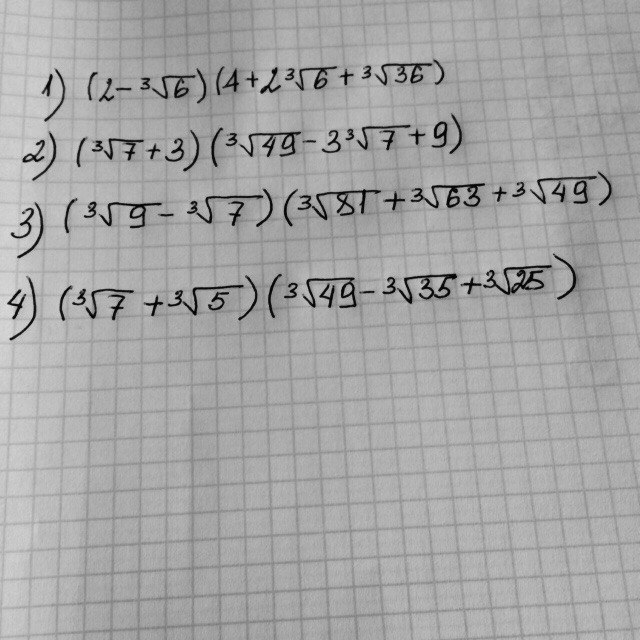 1) (2-³√6)(4+2³√6+³√36)
2) (³√7+3)(³√49-3³√7+9)
3) (³√9-³√7)(³√81+³√63+³√49)
4) (³√7+³√5)(³√49-³√35+³√25)